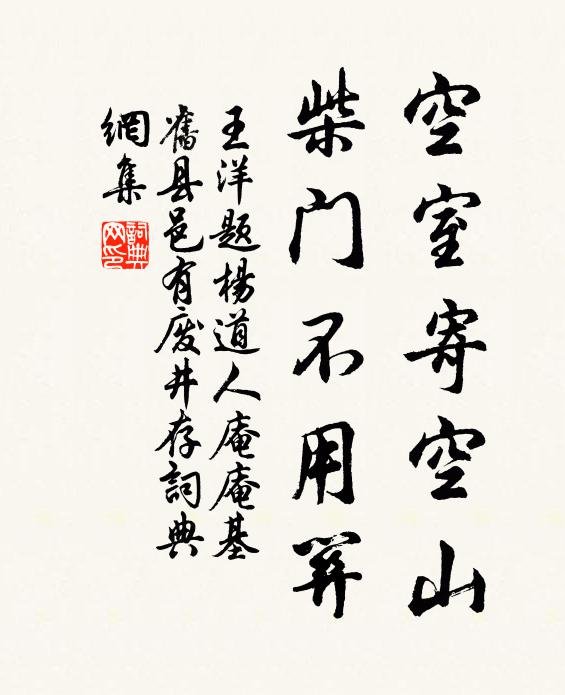 空室寄空山
柴门不用关
王洋题杨道人庵庵基
旧县邑有废井存词典
網集
詞典
网印